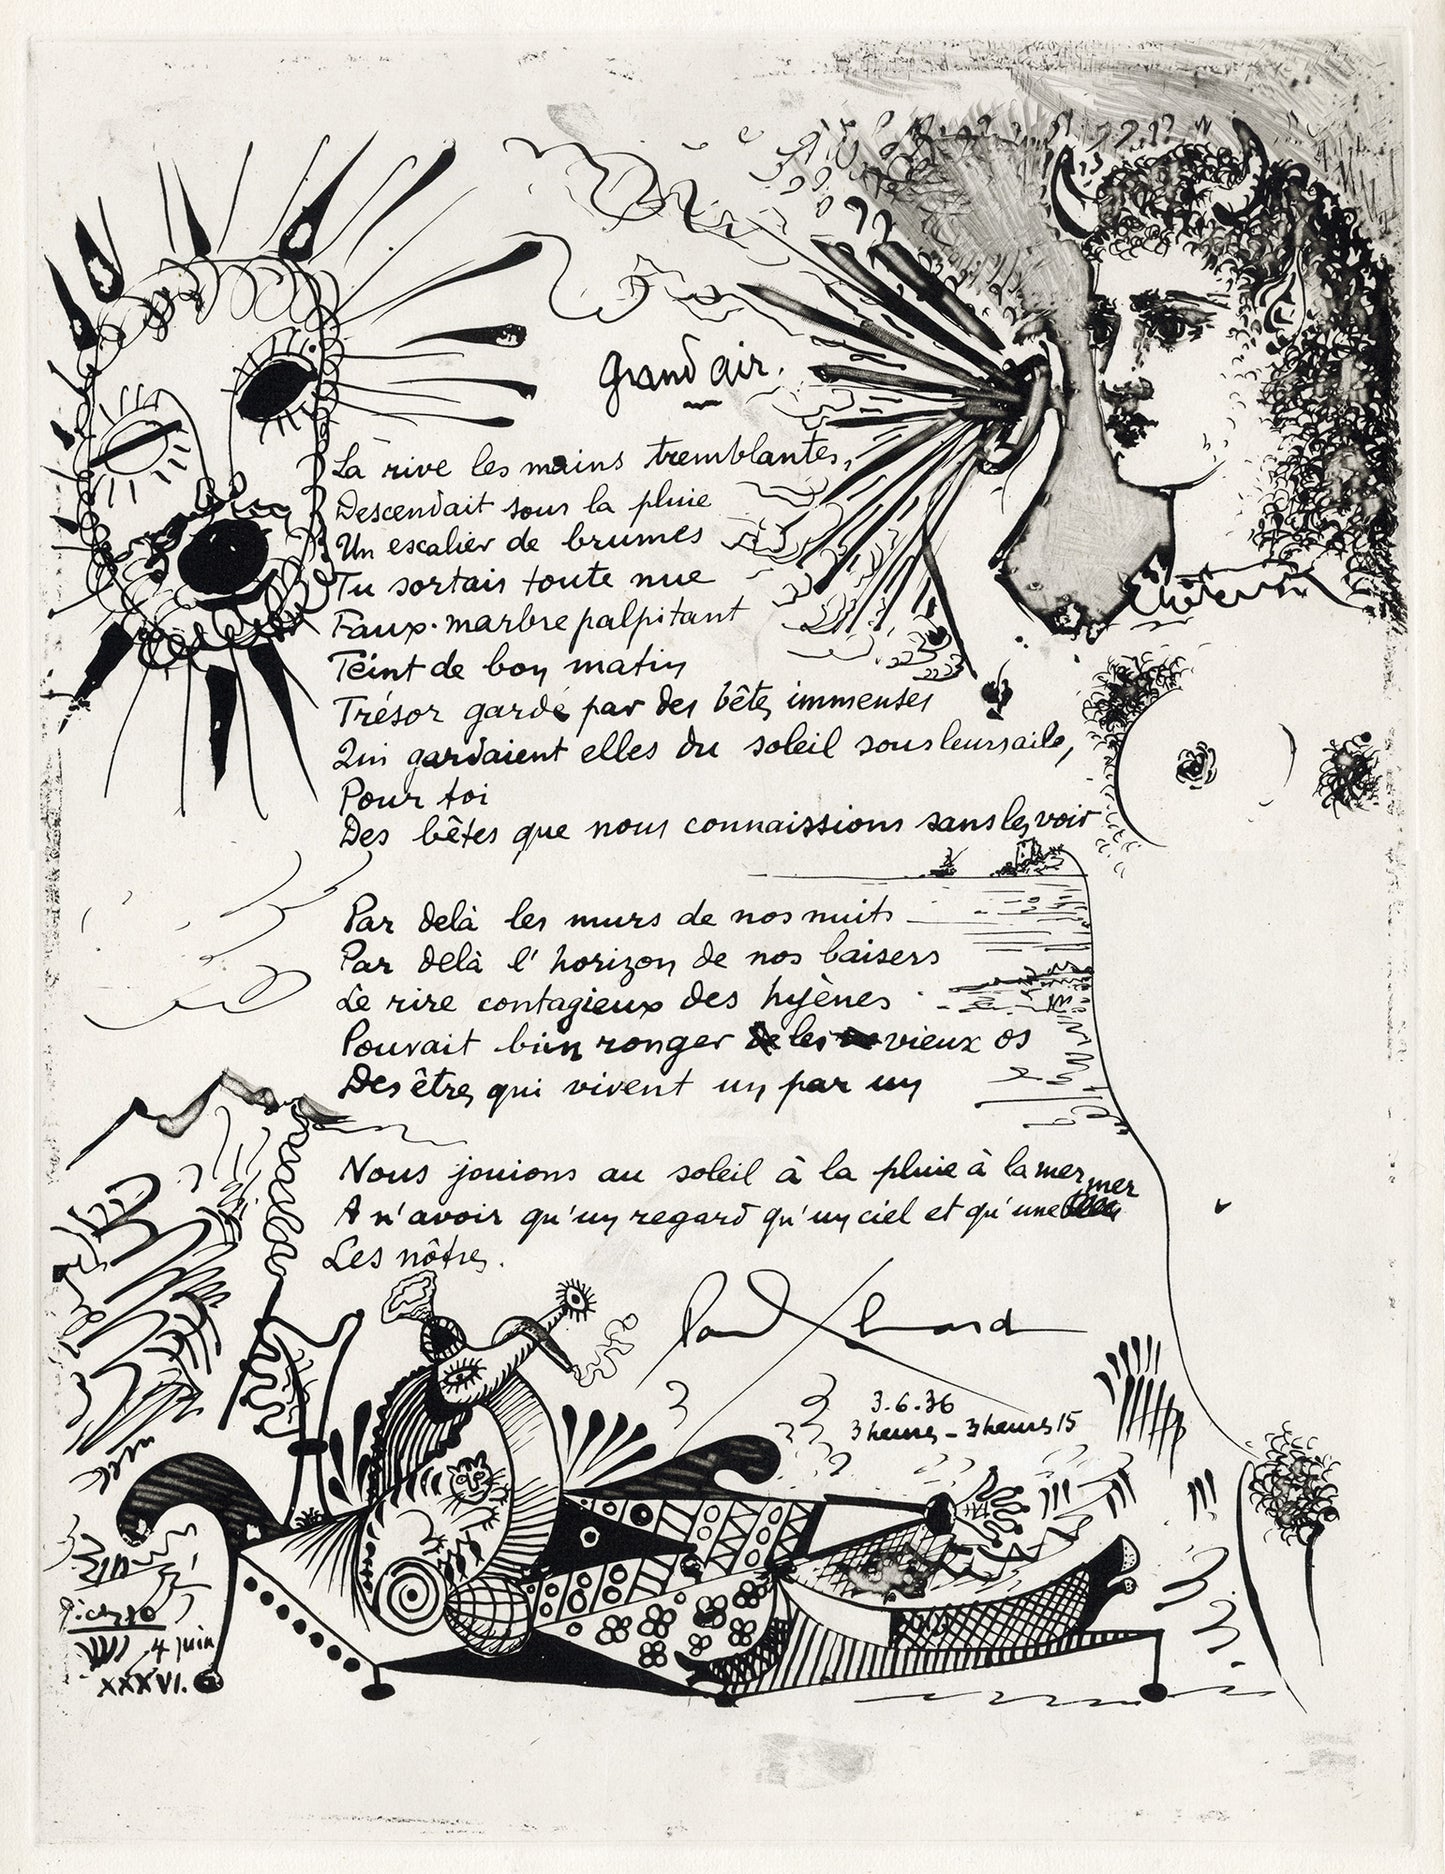 grand air.
La rive les mains tremblantes,
Descendait sous la pluie
Un escalier de brumes
Tu sortais toute nue
Faux marbre palpitant
Teint de bon matin
Trésor gardé par des bêtes immenses
Qui gardaient elles du soleil sous leurs ailes,
Pour toi
Des bêtes que nous connaissions sans les voir
Par delà les murs de nos nuits
Par delà l'horizon de nos baisers
Le rire contagieux des hyènes
Pouvait bien ronger les vieux os
Des êtres qui vivent un par un
Nous jouions au soleil à la pluie à la mer
A n'avoir qu'un regard qu'un ciel et qu'une mer
Les nôtres.
Paul Eluard
3.6.36
3 heures - 3 heures 15
Picasso
4 juin
XXXVI.